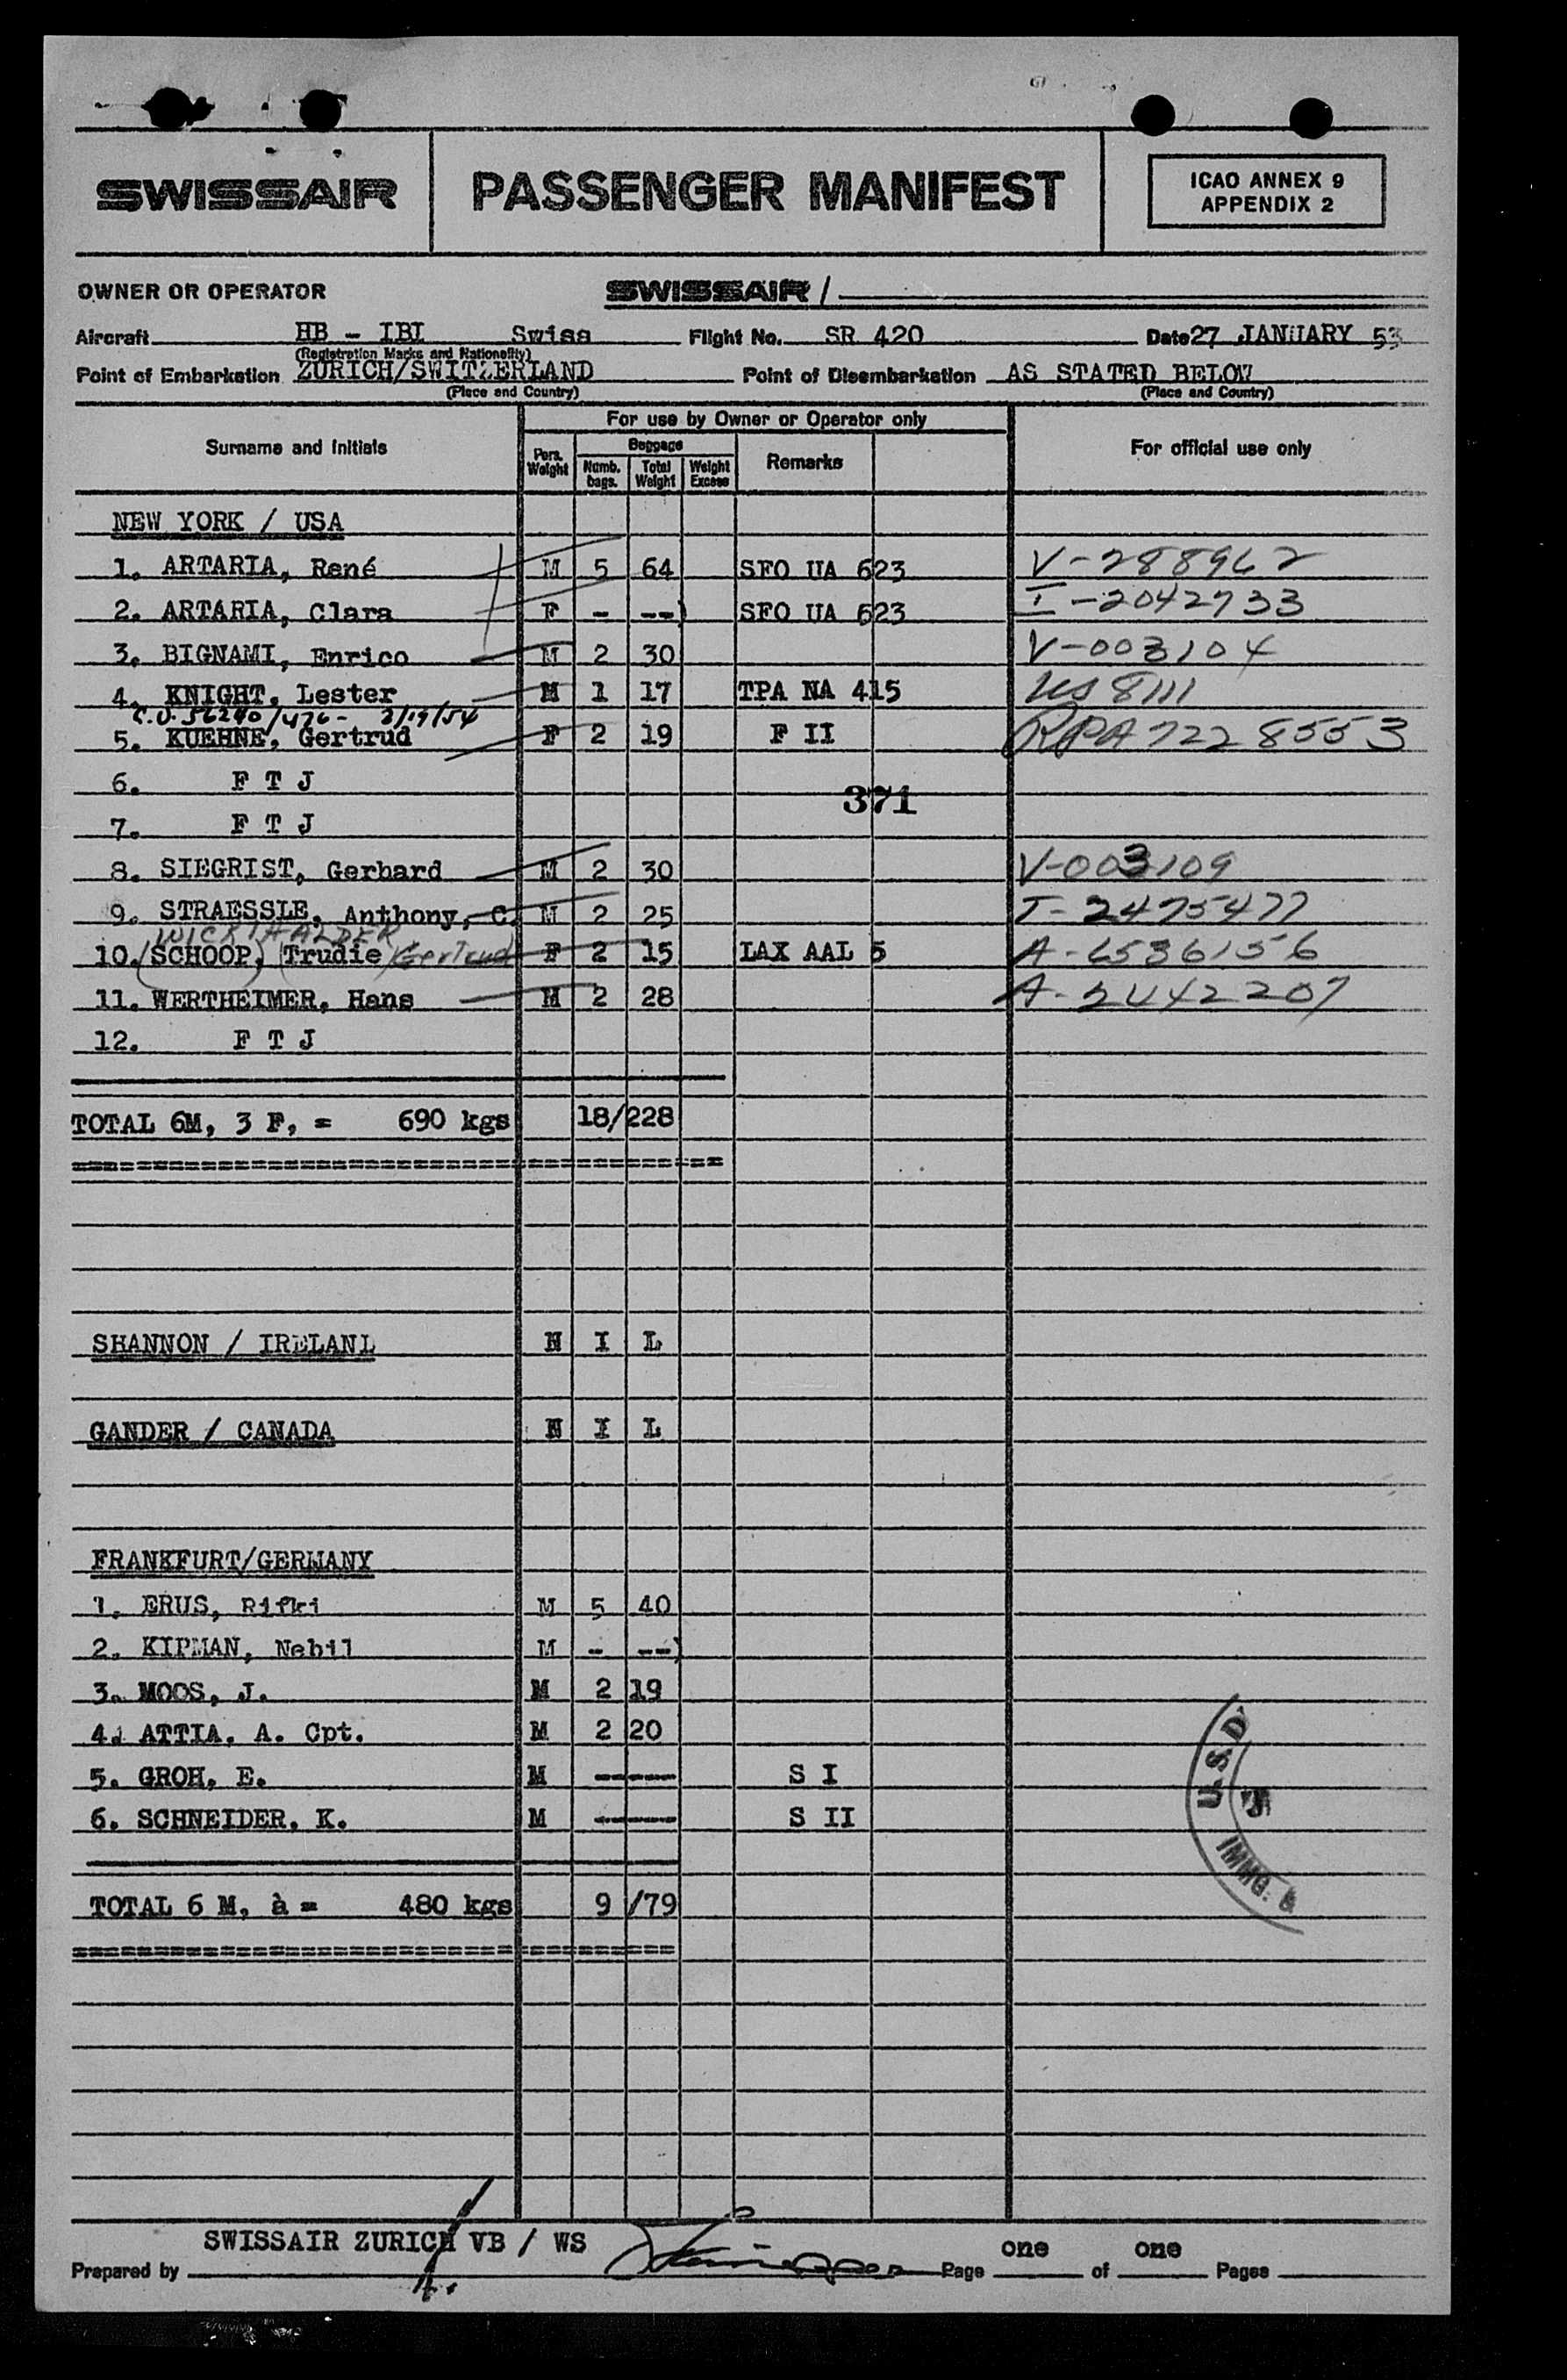 SWISSAIR PASSENGER MANIFEST ICAO ANNEX 9
APPENDIX 2
OWNER OR OPERATOR SWISSAIR /
Aircraft HB - IBI Swiss Flight No. SR 420 Date 27 JANUARY 53
(Registration Marks and Nationality)
Point of Embarkation ZURICH/SWITZERLAND Point of Disembarkation AS STATED BELOW
(Place and Country) (Place and Country)
For use by Owner or Operator only
Surname and Initials Pers. Weight Baggage Numb. bags. Total Weight Weight Excess Remarks For official use only
NEW YORK / USA
1. ARTARIA, René M 5 64 SFO UA 623 V-288962
2. ARTARIA, Clara F - --) SFO UA 623 I-2042733
3. BIGNAMI, Enrico M 2 30 V-003104
4. KNIGHT, Lester M 1 17 TPA NA 415 US 8111
C.O. 56240/476- 3/19/54
5. KUEHNE, Gertrud F 2 19 F II RPA 7228553
6. F T J
371
7. F T J
8. SIEGRIST, Gerhard M 2 30 V-003109
9. STRAESSLE, Anthony, C. M 2 25 T-2475477
WICKIHALDER
10. (SCHOOP), (Trudie) Gertrud F 2 15 LAX AAL 5 A-6536156
11. WERTHEIMER, Hans M 2 28 A-2442207
12. F T J
TOTAL 6M, 3 F, = 690 kgs 18/228
SHANNON / IRELAND N I L
GANDER / CANADA N I L
FRANKFURT/GERMANY
1. ERUS, Rifki M 5 40
2. KIPMAN, Nebil M - --)
3. MOOS, J. M 2 19
4. ATTIA, A. Cpt. M 2 20
5. GROH, E. M ---- S I
6. SCHNEIDER, K. M ---- S II
U.S. D
IMMG. &
TOTAL 6 M, à = 480 kgs 9 /79
SWISSAIR ZURICH VB / WS
Prepared by Page one of one Pages